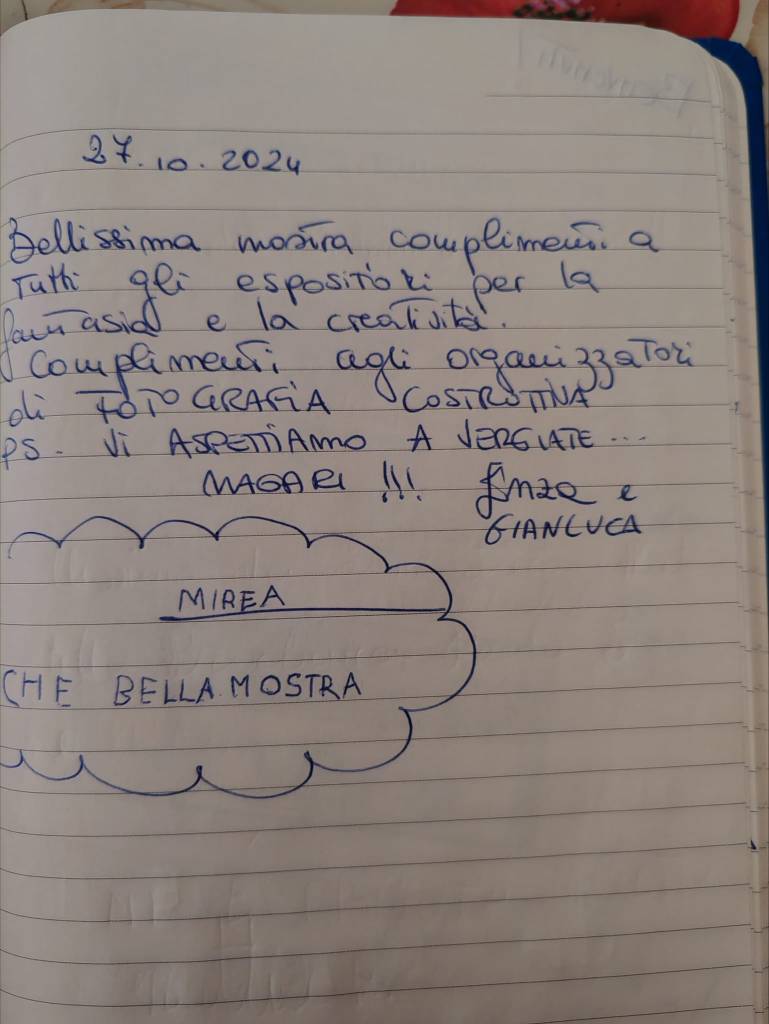 27.10.2024
Bellissima mostra complimenti a
Tutti gli espositori per la
fantasia e la creatività.
Complimenti agli organizzatori
di FOTOGRAFIA COSTRUTTIVA
PS. Vi ASPETTIAMO A VERGIATE...
MAGARI !!! Enza e
GIANLUCA
MIREA
CHE BELLA MOSTRA